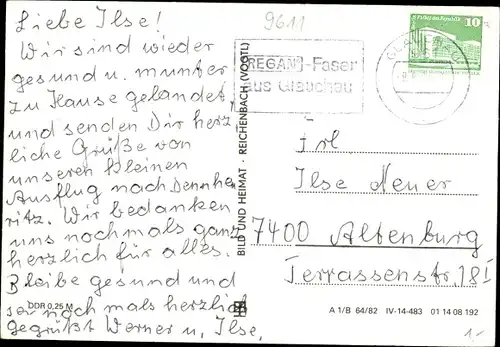 Liebe Ilse!
Wir sind wieder
gesund u. munter
zu Hause gelandet,
und senden Dir herz,
liche Grüße von
unseren kleinen
Ausflug nach Dennhe,
ritz. Wir bedanken
uns nochmals ganz
herzlich für alles.
Bleibe gesund und
sei noch mals herzlich
gegrüßt Werner u, Ilse,
DDR 0,25 M
BILD UND HEIMAT · REICHENBACH (VOGTL)
9611
REGAN-Faser
aus Glauchau
10
Frl
Ilse Neuer
7400 Altenburg
Terrassenstr, 18I
A 1/B 64/82 IV-14-483 01 14 08 192
1,-